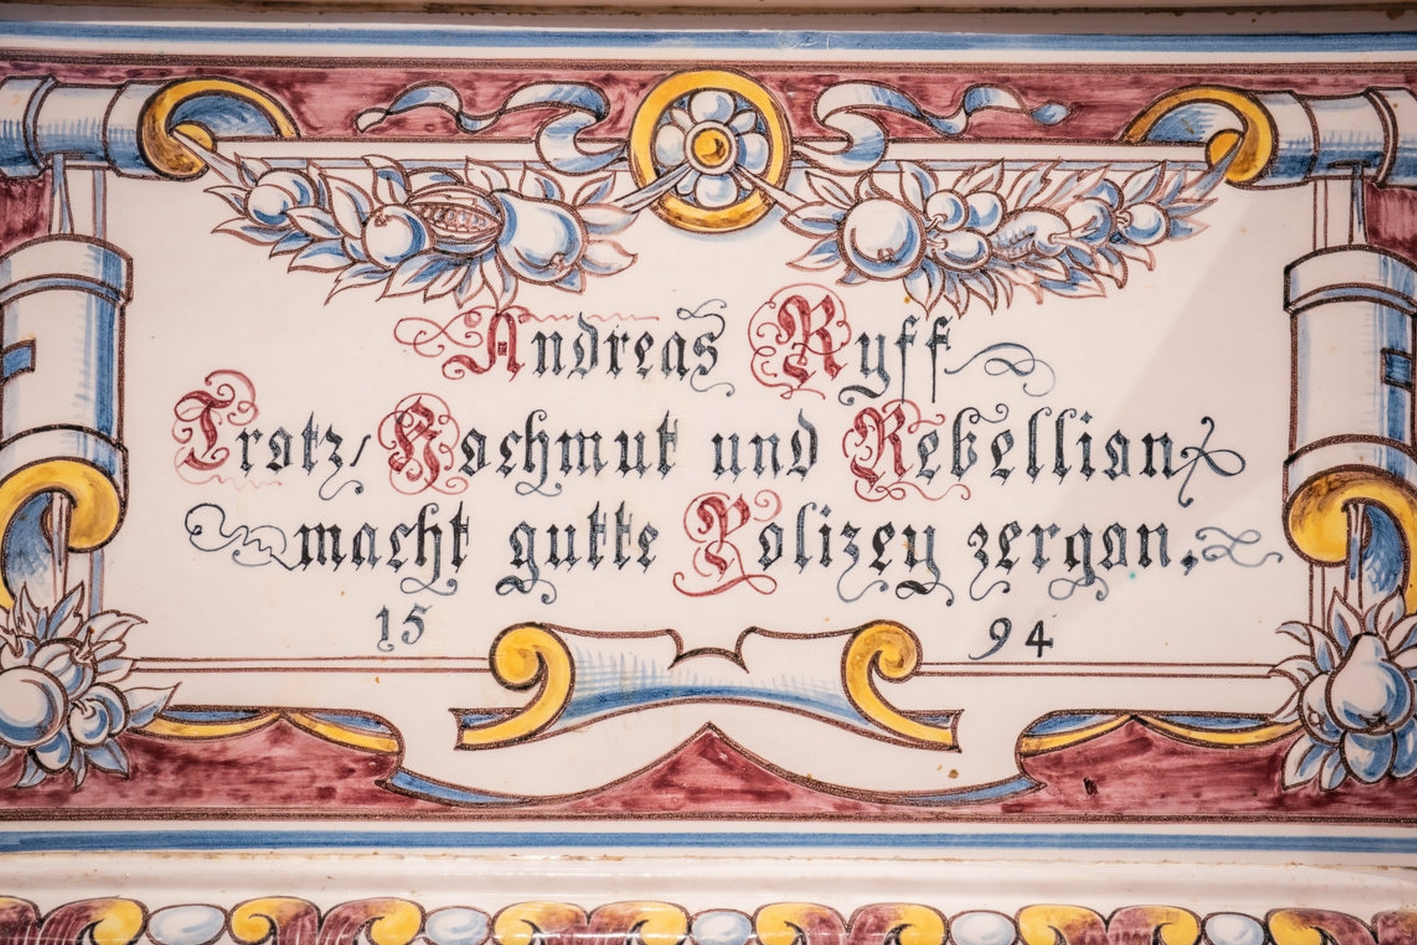 Andreas Ryff
Trotz/ Hochmut und Rebellion
macht gutte Polizey zergon,
15 94